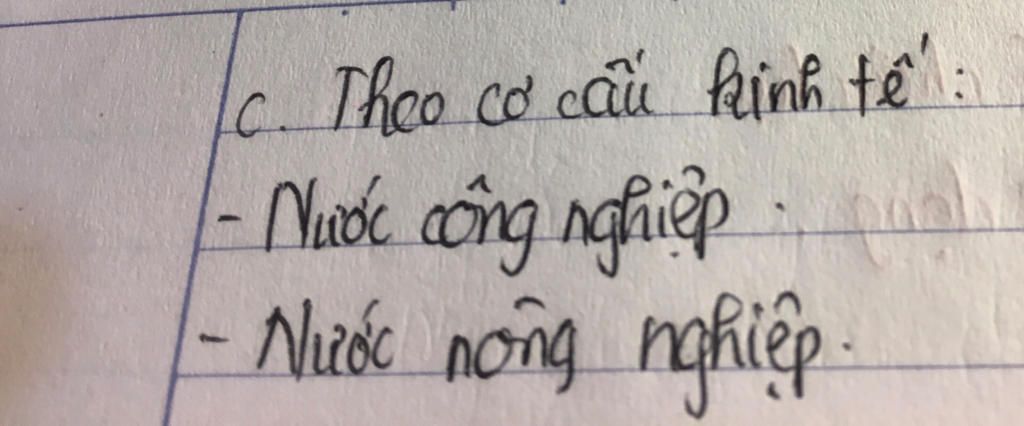 c. Theo cơ cấu kinh tế :
- Nước công nghiệp.
- Nước nông nghiệp.